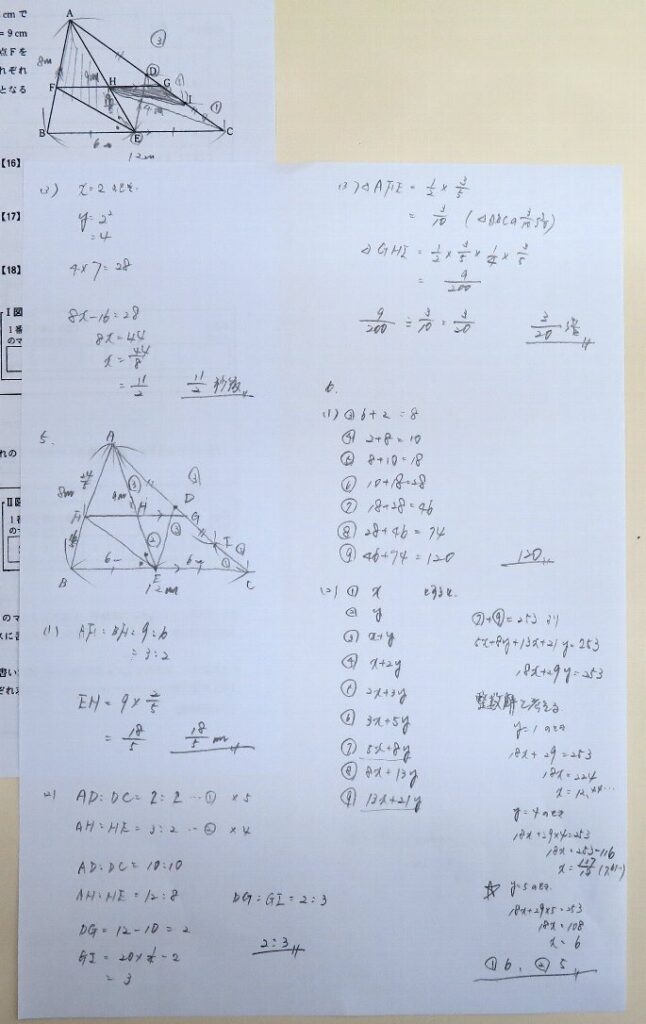 cmで
=9cm
点Fを
ぞれ
となる
A
③
8cm
9cm
D
F
H
G
I
①
4cm
B
E
C
6cm
12cm
【16】
【17】
【18】
I図
1番
のマ
れの
II図
1番
のマ
(3) x=2のとき.
y=2²
=4
4×7=28
8x-16=28
8x=44
x=44/8
=11/2
11/2 秒後
5.
A
8cm
24/5
③
9cm
③
D
F
H
G
②
③
I
①
B
6cm
E
6cm
C
12cm
(1) AF:BF=9:6
=3:2
EH=9×2/5
=18/5
18/5 cm
(2) AD:DC=2:2…① ×5
AH:HE=3:2…② ×4
AD:DC=10:10
AH:HE=12:8
DG:GI=2:3
DG=12-10=2
2:3
GI=20×1/4-2
=3
(3) △AFE=1/2×3/5
=3/10 (△ABCの3/10です)
△GHI=1/2×3/5×1/4×3/5
=9/200
9/200÷3/10=3/20
3/20 倍
6.
(1) ③ 6+2=8
④ 2+8=10
⑤ 8+10=18
⑥ 10+18=28
⑦ 18+28=46
⑧ 28+46=74
⑨ 46+74=120
120
(2) ① x とすると.
② y
③ x+y
④ x+2y
⑤ 2x+3y
⑥ 3x+5y
⑦ 5x+8y
⑧ 8x+13y
⑨ 13x+21y
⑦+⑨=253 より
5x+8y+13x+21y=253
18x+29y=253
整数解で考える
y=1のとき
18x+29=253
18x=224
x=12.44…
y=4のとき
18x+29×4=253
18x=253-116
x=137/18
☆ y=5のとき.
18x+29×5=253
18x=108
x=6
① 6, ② 5